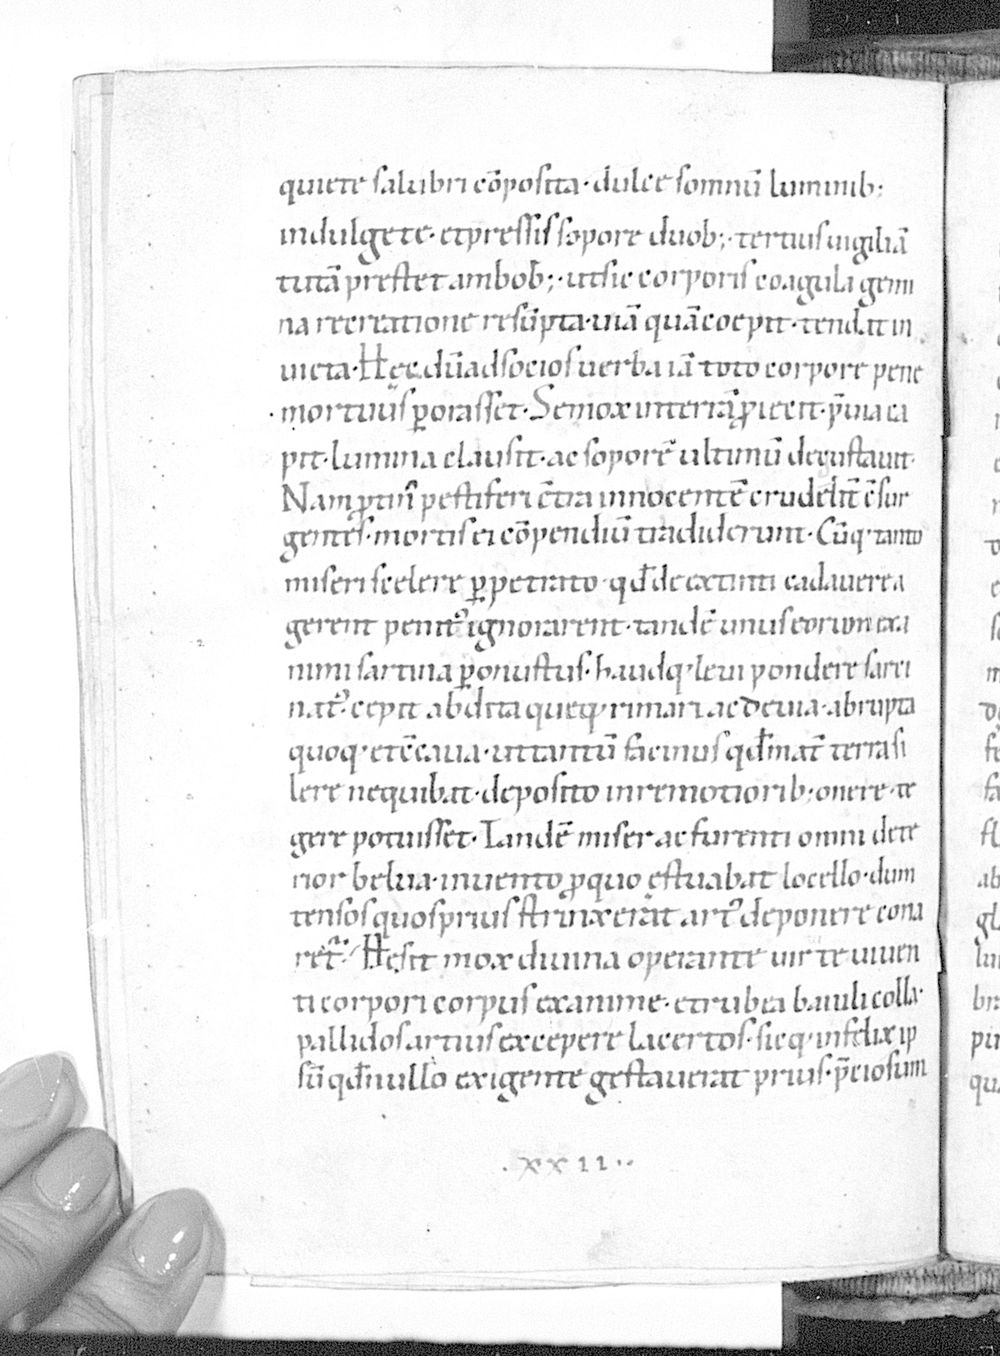 quiete salubri cōposita· dulce somnū luminib;
indulgete· et pressis sopore duob;· tertius uigiliā
tutā prestet ambob;· ut sic corporis coagula gemi
na recreatione resūpta· uiā quā coepit· tendat in
uicta· Hęc dū ad socios uerba iā toto corpore pene
mortuus ꝑorasset· Se mox in terrā ꝓiecit· p̄uia ca
pit· lumina clausit· ac soporē ultimū degustauit·
Nam pestiferi c̄tra innocentē crudelit̄ c̄sur
gentes· mortis ei cōpendiū tradiderunt· Cūq· tanto
miseri scelere ꝑpetrato· qđ de extincti cadauere a
gerent penit᾽ ignorarent· tandē unus eorum exa
nimi sarcina ꝑonustus· haudq· leui pondere sarci
nat᾽· cepit abdita queq· rimari ac deuia· abrupta
quoq· et c̄caua· ut tantū facinus qđ mat̄ terra si
lere nequibat· deposito in remotiorib; onere· te
gere potuisset· Tandē miser ac furenti omni dete
rior belua· inuento ꝓ quo ęstuabat locello· dum
tensos quos prius strinxerat art᾽ deponere cona
ret᾽· Hęsit mox diuina operante uirte uiuen
ti corpori corpus exanime· et rubea baiuli colla·
pallidos artus excepere lacertos· sicq· infelix ip
sū qđ nullo exigente gestauerat prius· p̄ciosum
·xxii··